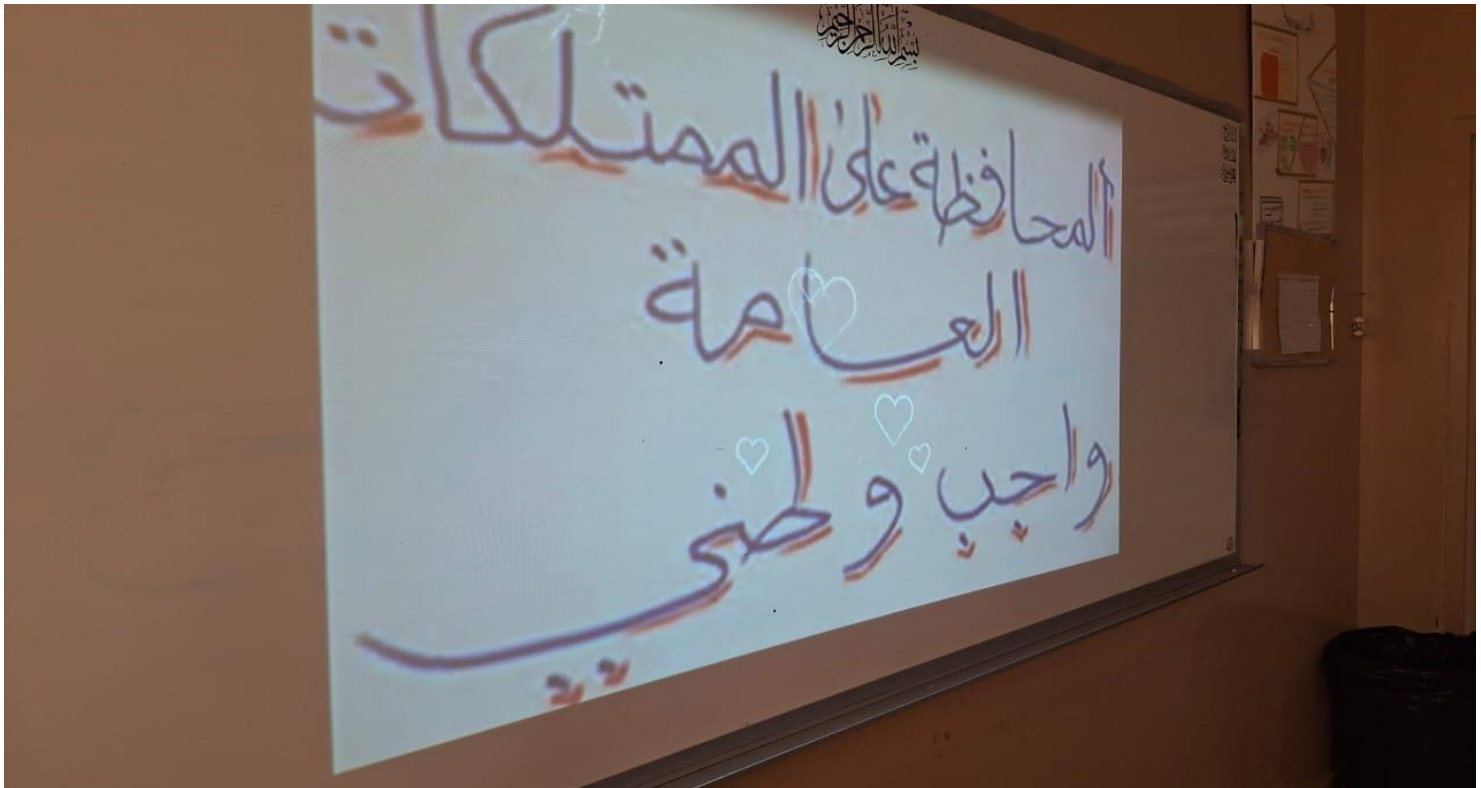 بسم الله الرحمن الرحيم
المحافظة على الممتلكات
العامة
واجب وطني